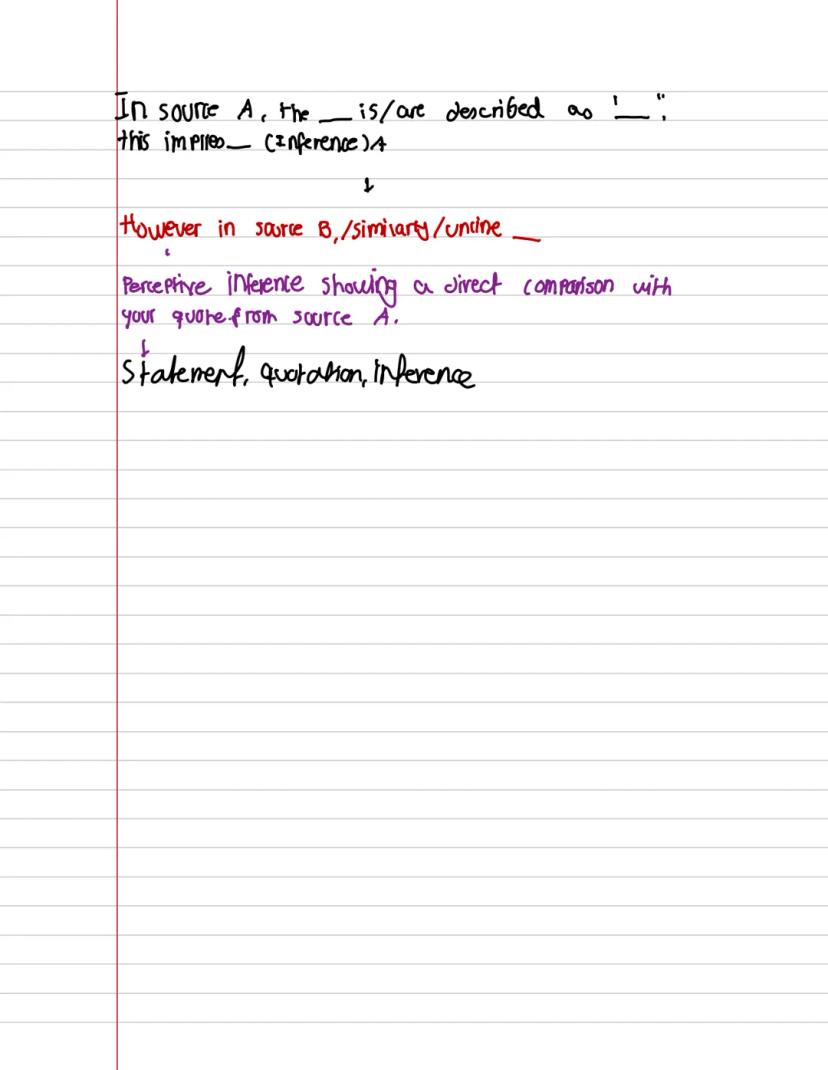 In source A, the __ is/are described as '__".
this implies __ (Inference) A
↓
However in source B,/similarly/unline __
Perceptive inference showing a direct comparison with
your quote from source A.
↓
Statement, quotation, inference